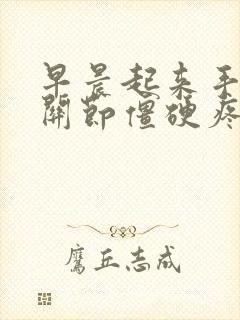 早晨起来手
關節僵硬疼
鷹丘志成